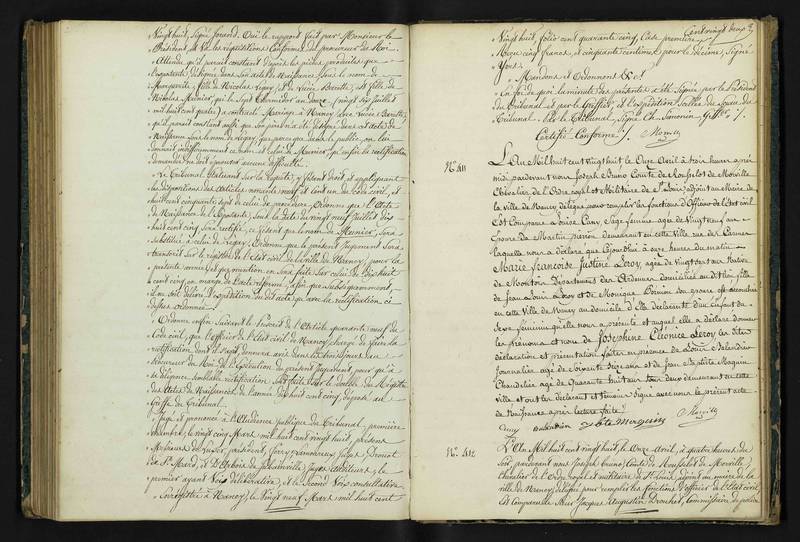 Vingt huit, Signé forand. Ouï le rapport fait par Monsieur le
Président, et les réquisitions Conformes du procureur du Roi.
Attendu, qu'il parait constant d'après les pièces produites que
l'exposante, désignée dans son acte de Naissance sous le nom de
fille de Nicolas Legay, et de
Nicolas Meunier, qui le Sept thermidor an douze (vingt six Juillet
mil huit cent quatre) a contracté Mariage à Nancy avec
qu'il parait constant aussi que Son père n'a été désigné dans cet acte de
Naissance sous le nom de Legay, que parce que dans le public, on lui
donnait indifféremment ce nom et celui de Meunier, qu'enfin la rectification
demandée ne doit éprouver aucune difficulté.
Le Tribunal, Statuant Sur la requête, y faisant droit, et appliquant
les dispositions des Articles nonante neuf et Cent un du Code civil, et
huit cent cinquante Sept de celui de procédure Ordonne que l'Acte
de Naissance de l'Exposante, Sous la date du vingt neuf Juillet dix
huit cent cinq Sera rectifié, en ce sens que le nom de Meunier, Sera
Substitué à celui de Legay; Ordonne que le présent Jugement Sera
transcrit Sur le registre de l'Etat civil de la ville de Nancy, pour la
présente année, et que mention en Sera faite Sur celui de Dix huit
cent cinq, en marge de l'acte réformé, afin que Subséquemment,
il ne Soit délivré Expédition du dit acte qu'avec la rectification ci
dessus ordonnée.
Ordonne enfin Suivant le Prescrit de l'Article quarante neuf du
Code civil, que l'officier de l'Etat civil de Nancy, chargé de faire la
rectification dont il s'agit, donnera avis dans les trois jours au
procureur du Roi de l'Exécution du présent Jugement, pour qu'à
sa diligence semblable rectification Soit faite Sur le double du Registre
des Actes de Naissances de l'année dix huit cent cinq, déposé au
Greffe du Tribunal.
Jugé et prononcé à l'Audience publique du Tribunal, première
chambre, le vingt cinq Mars mil huit cent vingt huit, présens
Messieurs de président, Juges,
de St Mard, et Juges auditeurs, le
premier ayant Voix délibérative, et le Second Voix consultative.
Enregistré à Nancy, le Vingt neuf Mars mil huit cent
Cent vingt
Vingt huit, folio cent quarante cinq, Case première,
Reçu cinq francs, et cinquante centimes pour le décime, Signé
Mandons et Ordonnons &c.
En foi de quoi la minute des présentes a été Signée par le Président
du Tribunal et par le Greffier, et l'expédition Scellée du Sceau du
Tribunal. Par le Tribunal, Signé Ch. Greffier.
Certifié Conforme.
No. 411
L'An Mil huit cent vingt huit le Onze Avril à trois heures après
midi pardevant nous Joseph Bruno Comte de Rousselot de Morville
Chevalier de l'Ordre royal et Militaire de St Louis adjoint au Maire de
la ville de Nancy délégué pour remplir les fonctions d'Officier de l'Etat civil
Est Comparue Louise Cany, Sage femme agée de Vingt neuf ans
Epouse de Martin demeurant en cette Ville rue des Carmes
laquelle nous a déclaré que Cejourd'hui à onze heures du matin
Marie Francoise Justine Leroy, agée de vingt sept ans Native
de Département des Ardennes domiciliée audit lieu fille
de Jean Louis Leroy et de Monique
en cette Ville de Nancy au domicile d'Elle déclarante d'un Enfant du
Sexe féminin qu'elle nous a présenté et auquel elle a déclaré donner
les prénoms et nom de Josephine Léonice Leroy les dites
déclaration et présentation faites en présence de
Journalier agé de Soixante Six ans et de Jean Baptiste
Chandelier agé de Quarante huit ans tous deux demeurant en cette
ville et ont les déclarant et témoins Signé avec nous le présent acte
de Naissance après lecture faite.
No. 412
L'An Mil huit cent vingt huit, le Onze Avril, à quatre heures du
Soir, pardevant nous Joseph bruno, Comte de Rousselot de Morville,
chevalier de l'Ordre royal et militaire de St Louis, adjoint au maire de la
ville de Nancy, délégué pour remplir les fonctions d'officier de l'Etat civil,
Est Comparu le Sieur Jacques Augustin Drouhet, Commissaire de police